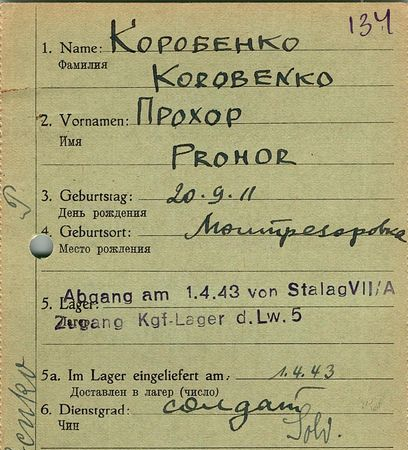 134
1. Name: Коробенко
Фамилия
Korobenko
2. Vornamen: Прохор
Имя
Prohor
3. Geburtstag: 20.9.11
День рождения
4. Geburtsort:
Место рождения
5. Lager: Abgang am 1.4.43 von Stalag VII/A
Лагерь: Zugang Kgf-Lager d. Lw. 5
5a. Im Lager eingeliefert am: 1.4.43
Доставлен в лагер (число)
6. Dienstgrad: солдат
Чин Sold.